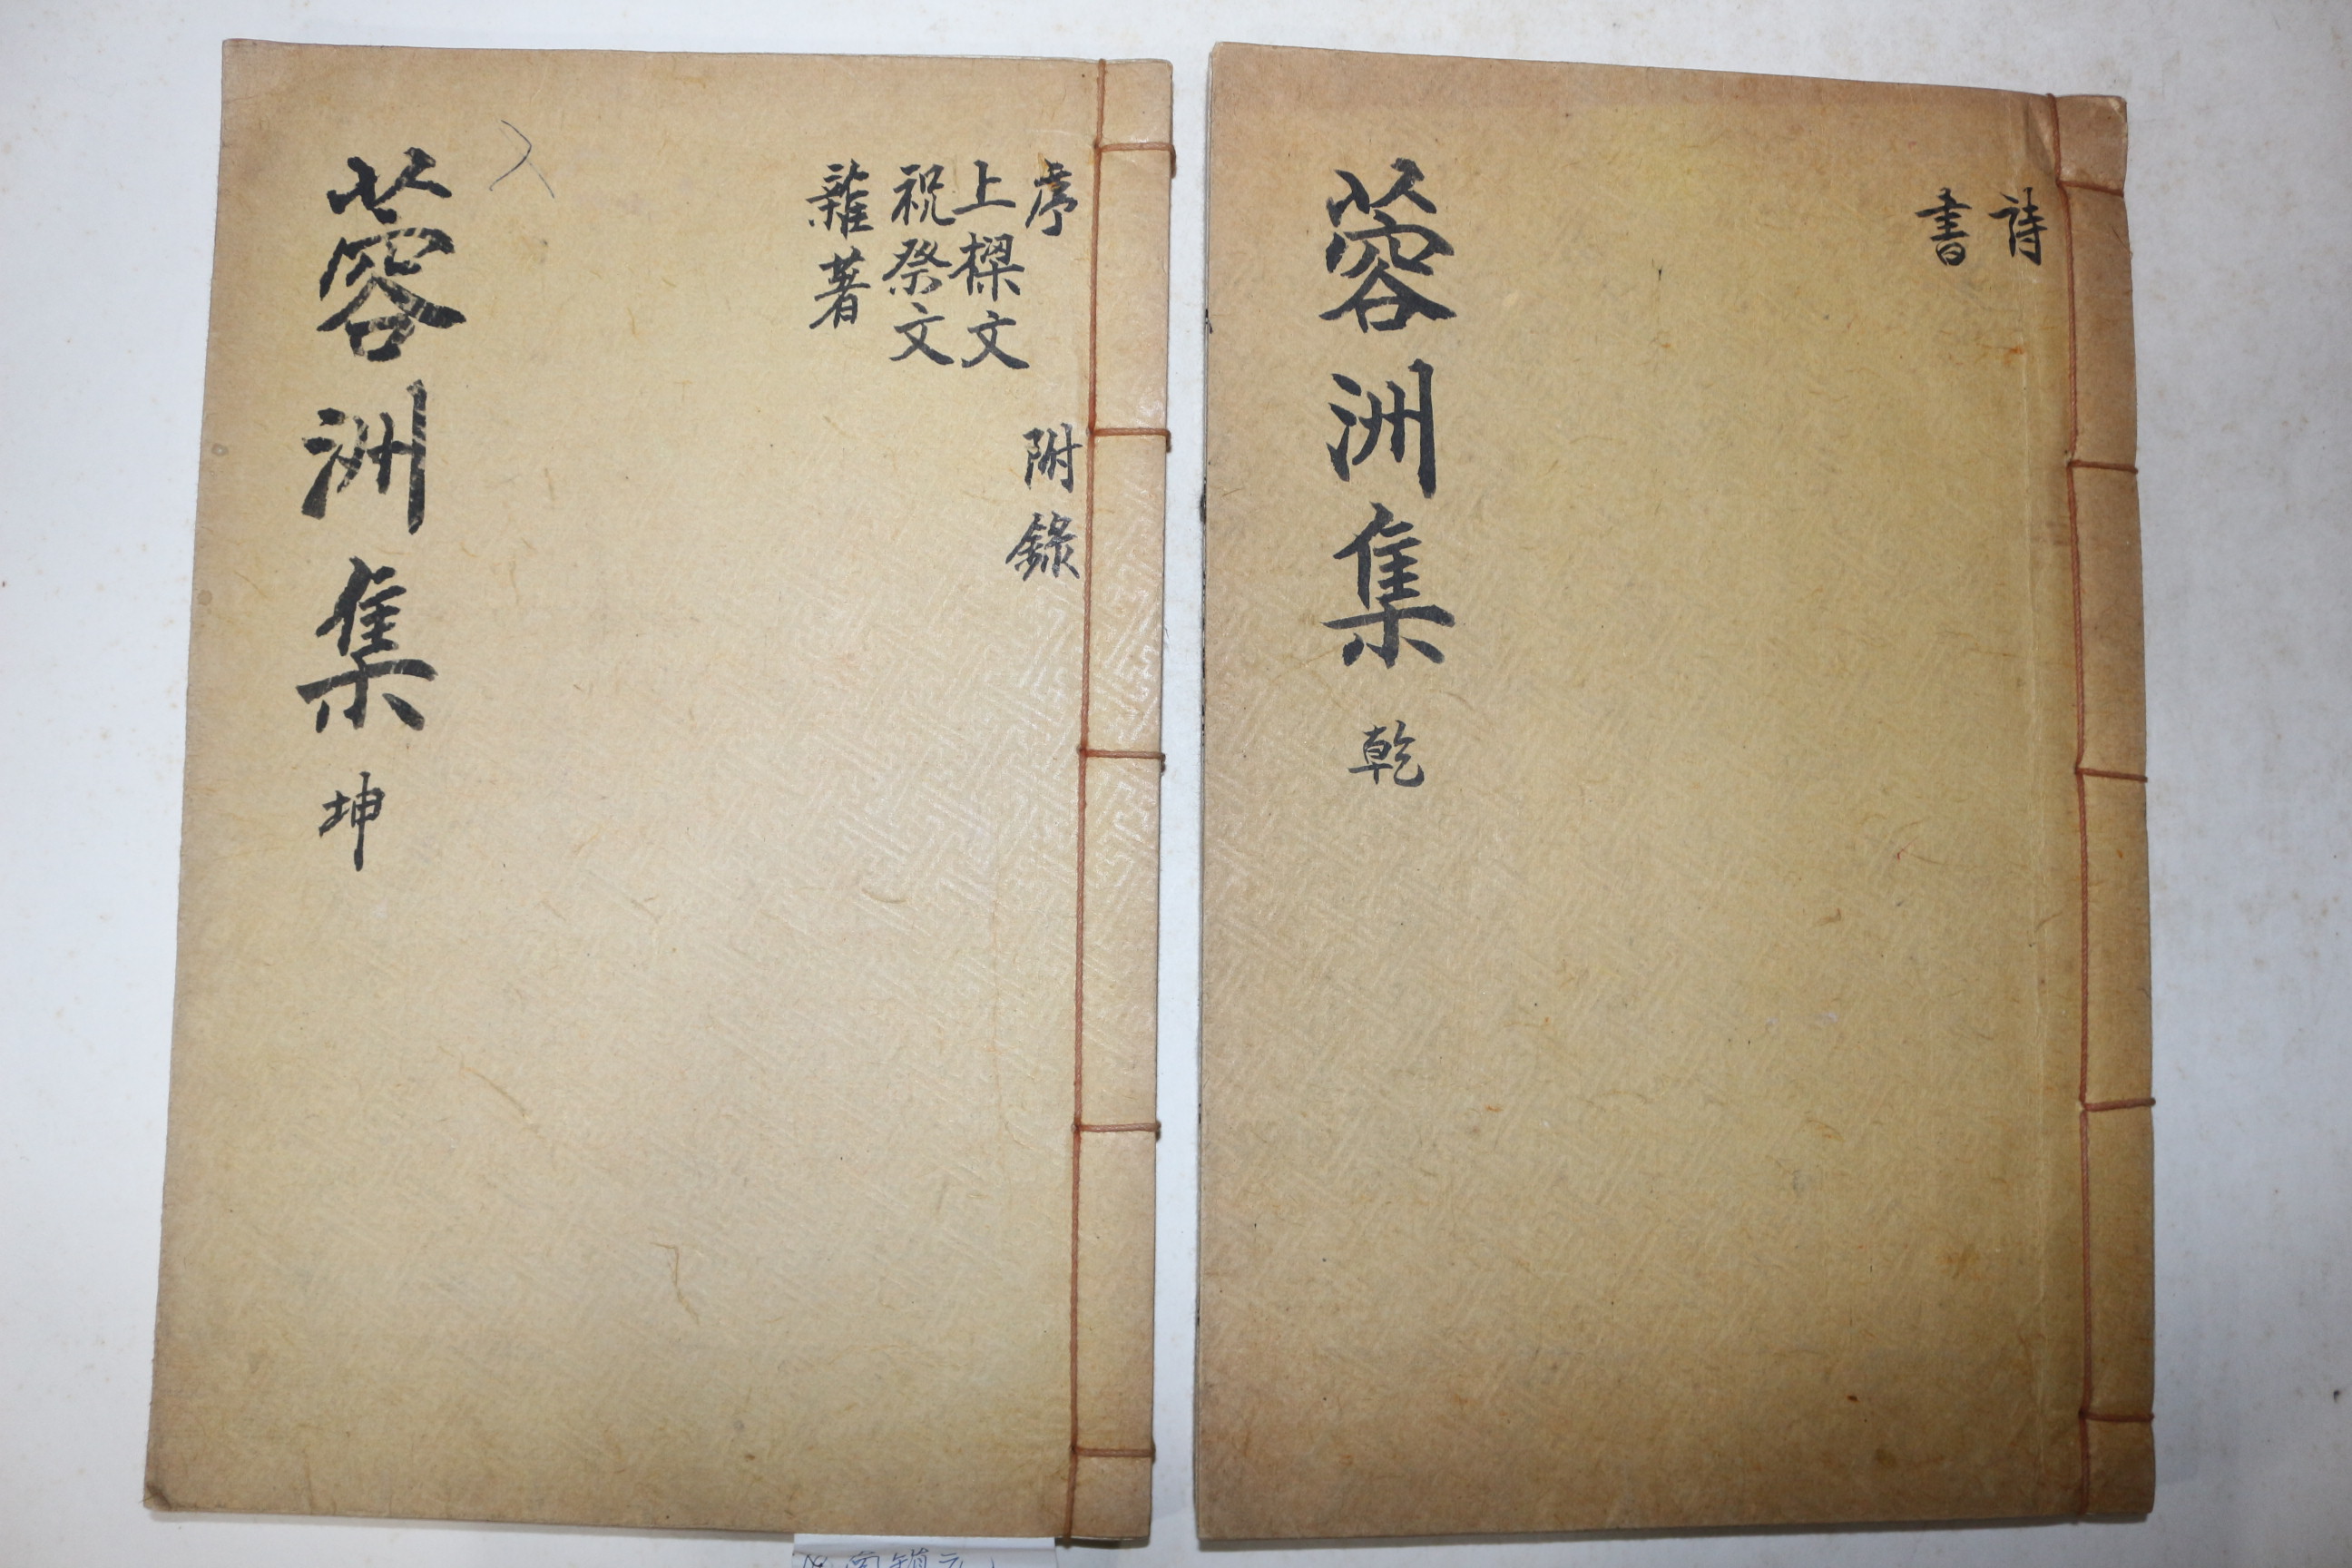 詩
書
蓉洲集 乾
序
附錄
上樑文
祝祭文
雜著
蓉洲集 坤